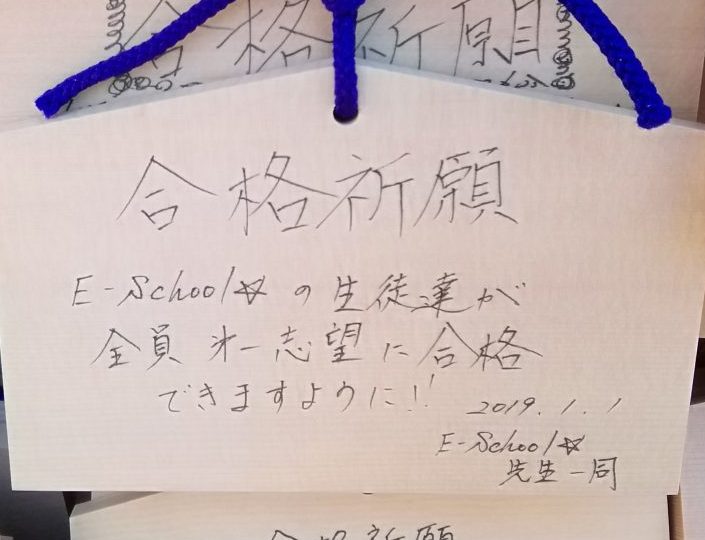 合格祈願
合格祈願
E-School☆の生徒達が
全員 才一志望に合格
できますように!!
2019.1.1
E-School☆
先生一同
合格祈願